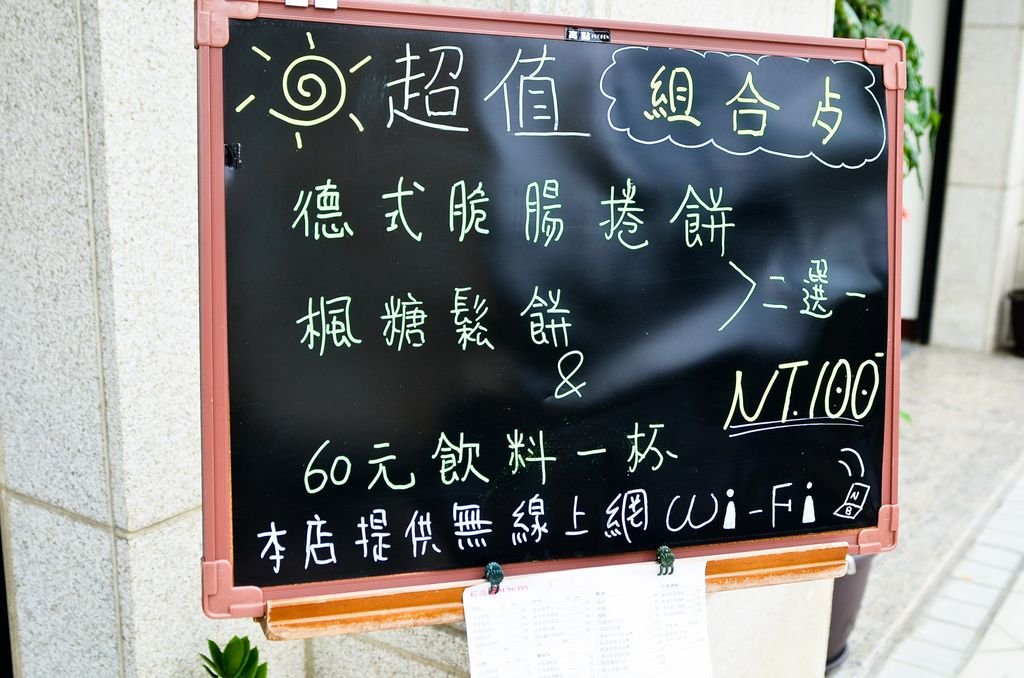 超值 組合歺
德式脆腸捲餅
楓糖鬆餅
二選一
&
NT.100
60元飲料一杯
本店提供無線上網 Wi-Fi